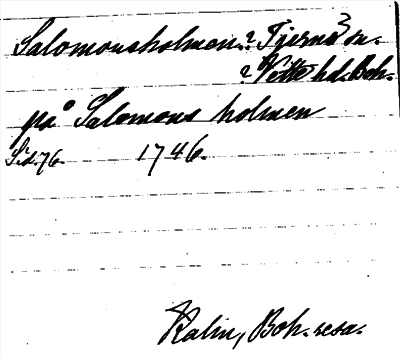 Salomonsholmen? Tjernö sn.
? Vette hd. Boh.
på Salomons holmen
Sid. 76. 1746.
Kalm, Boh. resa.